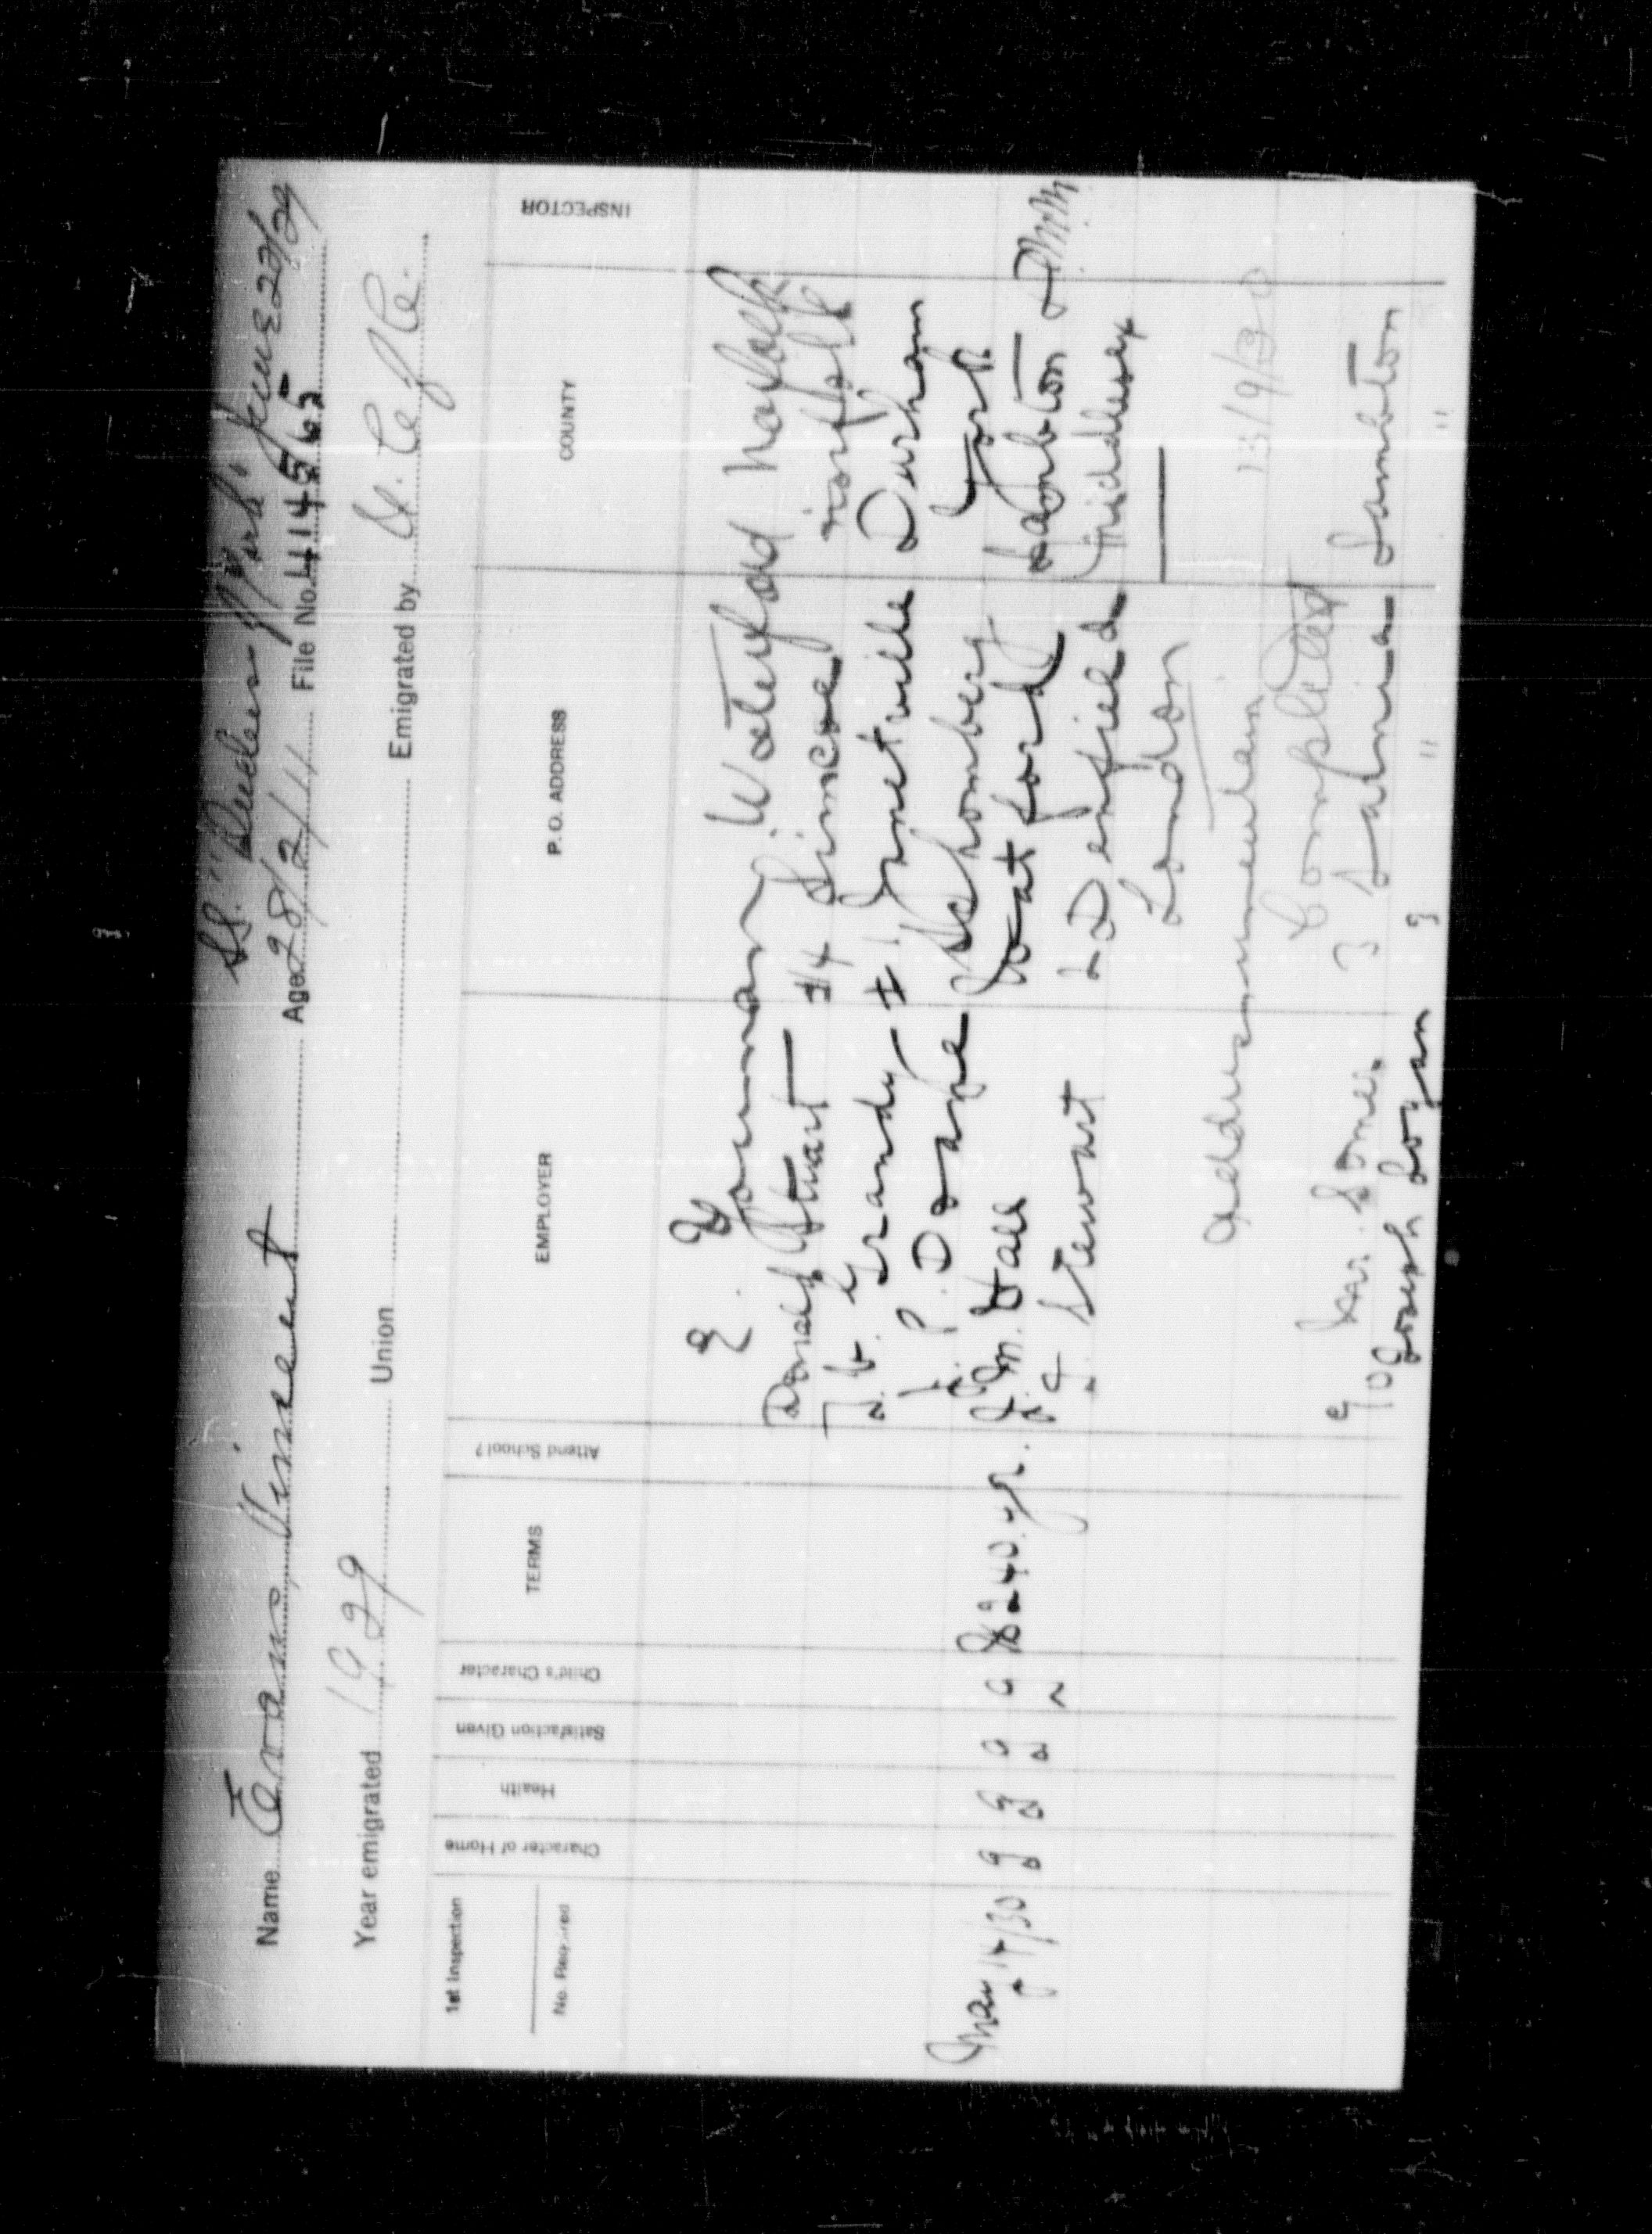 SS. "Duchess of York" June 22/29
Name Evans, Vincent Age 28/2/11 File No. 414562
Year emigrated 1929 Union Emigrated by
1st Inspection
No. Required
Character of Home
Health
Satisfaction Given
Child's Character
TERMS
Attend School?
EMPLOYER
P. O. ADDRESS
COUNTY
INSPECTOR
E. E. Youmans Waterford Norfolk
Donald Stuart #4 Simcoe Norfolk
Grandy #1 Janetville Durham
P. Doane Schomberg York
May 14/30 g g g g $240. yr. J. M. Hall Watford Lambton
Stewart 2 Denfield Middlesex
London
address unknown 13/9/30
Completed
Mr. Somer 3 Sarnia Lambton
Logan 3 " "